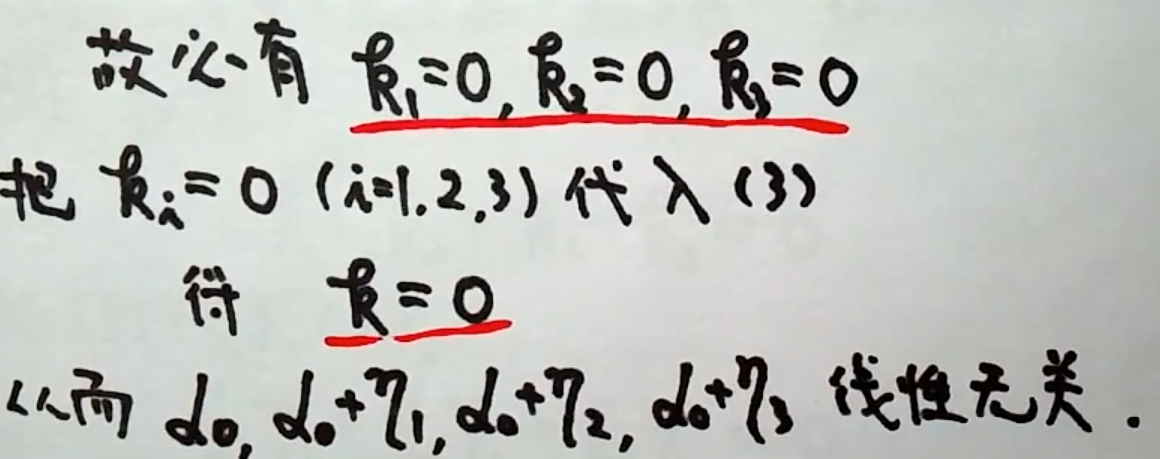 故必有 k₁=0, k₂=0, k₃=0
把 kᵢ=0 (i=1.2.3) 代入 (3)
得 k=0
从而 α₀, α₀+η₁, α₀+η₂, α₀+η₃ 线性无关.